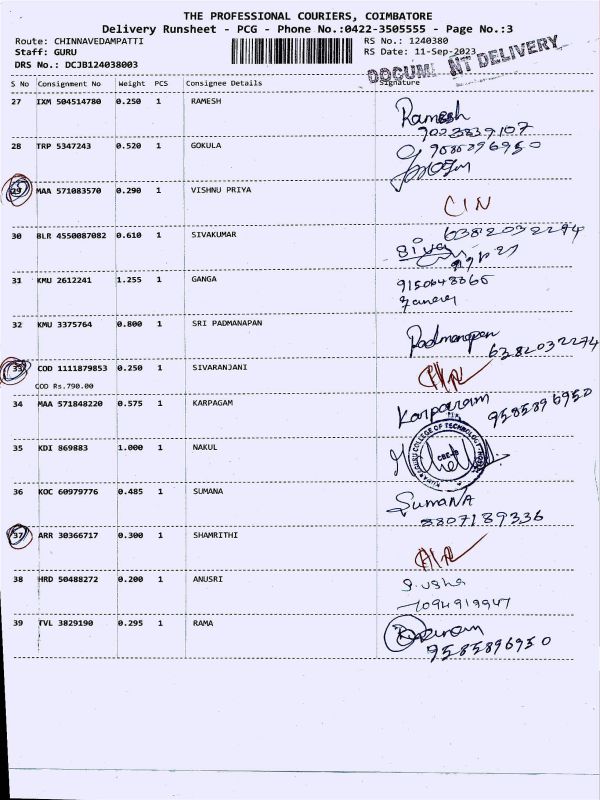 THE PROFESSIONAL COURIERS, COIMBATORE
Delivery Runsheet - PCG - Phone No.:0422-3505555 - Page No.:3
Route: CHINNAVEDAMPATTI RS No.: 1240380
Staff: GURU RS Date: 11-Sep-2023
DRS No.: DCJB124038003
DOCUMENT DELIVERY
S No Consignment No Weight PCS Consignee Details Signature
27 IXM 504514780 0.250 1 RAMESH Ramesh
28 TRP 5347243 0.520 1 GOKULA 9585896950
29 MAA 571083570 0.290 1 VISHNU PRIYA CIN
6382032274
30 BLR 4550087082 0.610 1 SIVAKUMAR Siva
31 KMU 2612241 1.255 1 GANGA
32 KMU 3375764 0.800 1 SRI PADMANAPAN Padmanapan
6382032274
33 COD 1111879853 0.250 1 SIVARANJANI
COD Rs.790.00
34 MAA 571848220 0.575 1 KARPAGAM 9585896950
35 KDI 869883 1.000 1 NAKUL
COLLEGE OF TECHNOLOGY
36 KOC 60979776 0.485 1 SUMANA SumaNA
8807189336
37 ARR 30366717 0.300 1 SHAMRITHI
38 HRD 50488272 0.200 1 ANUSRI
39 TVL 3829190 0.295 1 RAMA
9585896950